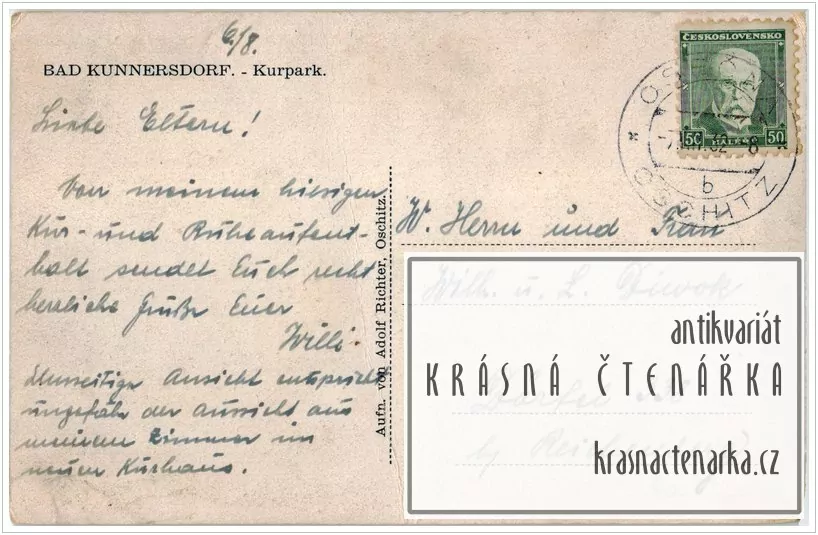 6/8.
BAD KUNNERSDORF. - Kurpark.
Liebe Eltern!
Von meinem hiesigen
Kur- und Ruheaufent-
halt sendet Euch recht
herzliche Grüße Euer
Willi.
Umseitige Ansicht entspricht
ungefähr der Aussicht aus
meinem Zimmer im
neuen Kurhaus.
Aufn. von Adolf Richter, Oschitz.
ČESKOSLOVENSKO
50 50
HALÉŘŮ
OSCHITZ
b
W. Herrn und Frau
Wilh. u. L.
antikvariát
KRÁSNÁ ČTENÁŘKA
krasnactenarka.cz